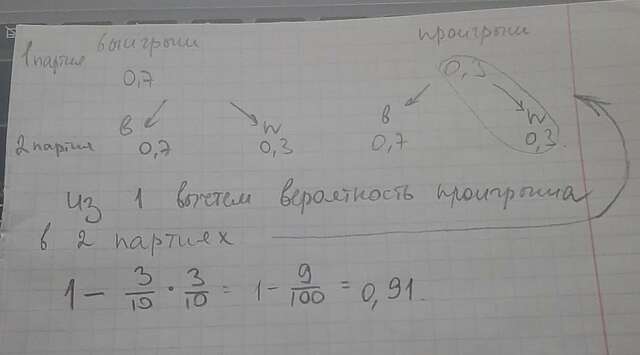 выигрыш проигрыш
1 партия
0,7 0,3
в н в н
2 партия 0,7 0,3 0,7 0,3.
из 1 вычтем вероятность проигрыша
в 2 партиях
1 - 3/10 · 3/10 = 1 - 9/100 = 0,91.